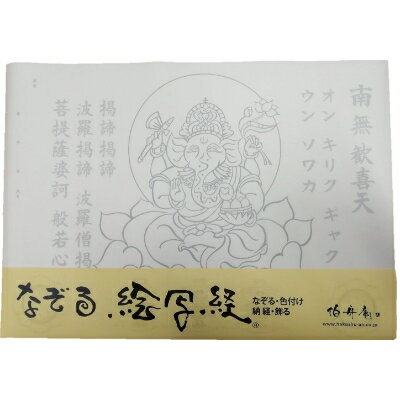 南無歓喜天
オン キリク ギャク
ウン ソワカ
掲諦掲諦
波羅掲諦 波羅僧掲
菩提薩婆訶 般若心
なぞる 絵写経
なぞる・色付け
納経・飾る